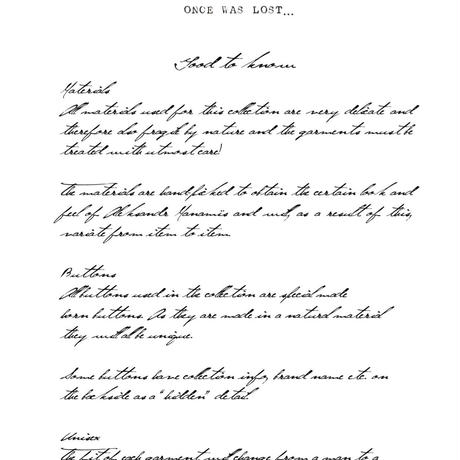 ONCE WAS LOST...
Good to know
Materials
All materials used for this collection are very delicate and
therefore also fragile by nature and the garments must be
treated with utmost care!
The materials are handpicked to obtain the certain look and
feel of Aleksandr Manamïs and will, as a result of this,
variate from item to item.
Buttons
All buttons used in the collection are special made
horn buttons. As they are made in a natural material
they will all be unique.
Some buttons have collection info, brand name etc. on
the backside as a "hidden" detail.
Unisex
The fit of each garment will change from a man to a